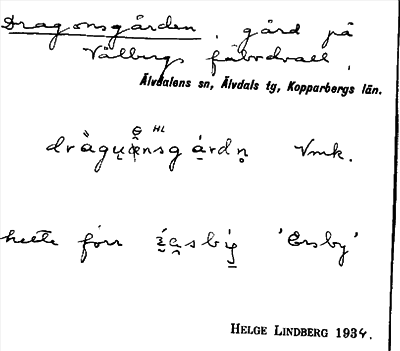 Dragonsgården, gård på
Vålbergs fäbodvall,
Älvdalens sn, Älvdals tg, Kopparbergs län.
HL
Vmk.
hette förr 'Ersby'
HELGE LINDBERG 1934.